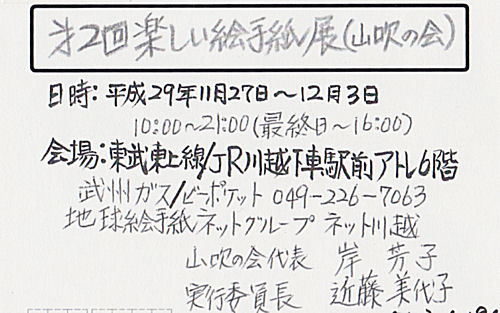 第2回楽しい絵手紙展(山吹の会)
日時:平成29年11月27日～12月3日
10:00～21:00(最終日～16:00)
会場:東武東上線/JR川越下車駅前アトレ6階
武州ガス/ビーポケット 049-226-7063
地球絵手紙ネットグループ ネット川越
山吹の会代表 岸 芳子
実行委員長 近藤美代子